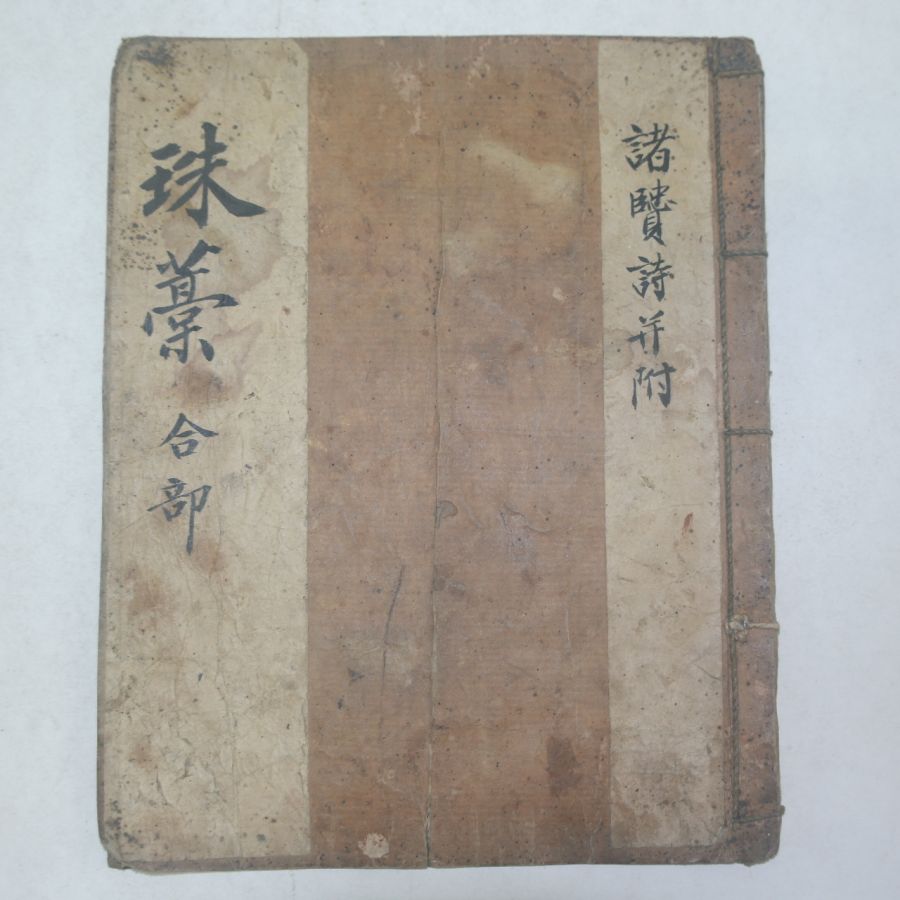 諸贒詩并附
珠藁 合部